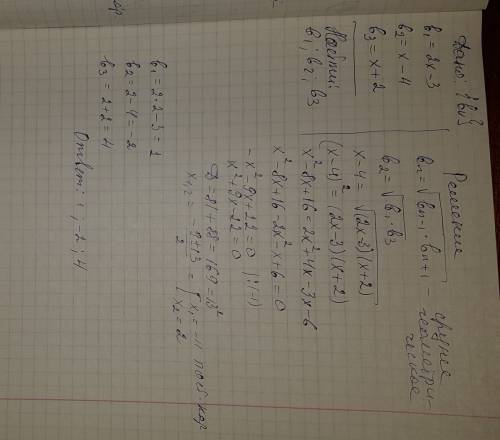 Дано: {bn}
b₁ = 2x-3
b₂ = x-4
b₃ = x+2
Найти:
b₁; b₂; b₃
Решение
bn = √(bn-1 · bn+1) - среднее
геометри-
ческое
b₂ = √(b₁ · b₃)
x-4 = √((2x-3)(x+2))
(x-4)² = (2x-3)(x+2)
x²-8x+16 = 2x²+4x-3x-6
x²-8x+16-2x²-x+6=0
-x²-9x+22=0 |:(-1)
x²+9x-22=0
D = 81+88=169=13²
x₁,₂ = (-9±13)/2 = [x₁=-11 пост. кор
x₂=2
b₁ = 2·2-3=1
b₂ = 2-4=-2
b₃ = 2+2=4
Ответ: 1; -2; 4